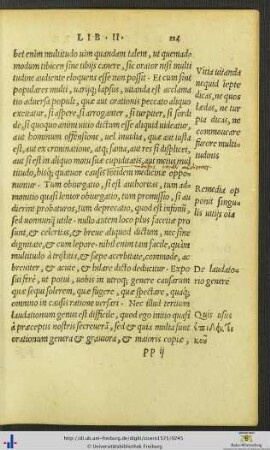 LIB. II.
bet enim multitudo uim quandam talem, ut quemad-
modum tibicen sine tibijs canere, sic orator nisi multi
tudine audiente eloquens esse non possit. Et cum sint
populares multi, uarijq; lapsus, uitanda est acclama
tio aduersa populi, quæ aut orationis peccato aliquo
excitatur, si asperè, si arroganter, si turpiter, si sordi-
dè, si quoquo animi uitio dictum esse aliquid uideatur,
aut hominum offensione, uel inuidia, quæ aut iusta
est, aut ex criminatione, atq; fama, aut res si displicet,
aut si est in aliquo motu suæ cupiditatis, aut metus mul
titudo, hisq; quatuor causis totidem medicinæ oppo-
nuntur. Tum obiurgatio, si est authoritas, tum ad-
monitio quasi lenior obiurgatio, tum promissio, si au
dierint probaturos, tum deprecatio, quod est infimũ,
sed nonnunquã utile. nullo autem loco plus facetiæ pro
sunt, & celeritas, & breue aliquod dictum, nec sine
dignitate, & cum lepore. nihil enim tam facile, quàm
multitudo à tristitia, & sæpe acerbitate, commodè, ac
breuiter, & acutè, & hilarè dicto deducitur. Expo
sui ferè, ut potui, uobis in utroq; genere causarum
quæ sequi solerem, quæ fugere, quæ spectare, quaq;
omnino in causis ratione uersari. Nec illud tertium
laudationum genus est difficile, quod ego initio quasi
à præceptis nostris secreueram, sed & quia multa sunt
orationum genera & grauiora, & maioris copiæ,
PP ij
Vitia uitanda
nequid ineptè
dicas, ne quos
lædas, ne tur
pia dicas, ne
commoueare
furore multi-
tudinis
Remedia op
ponit singu
lis uitijs ola
De laudatio
rio genere
Quis usus
http://dl.ub.uni-freiburg.de/diglit/cicero1521/0245
© Universitätsbibliothek Freiburg